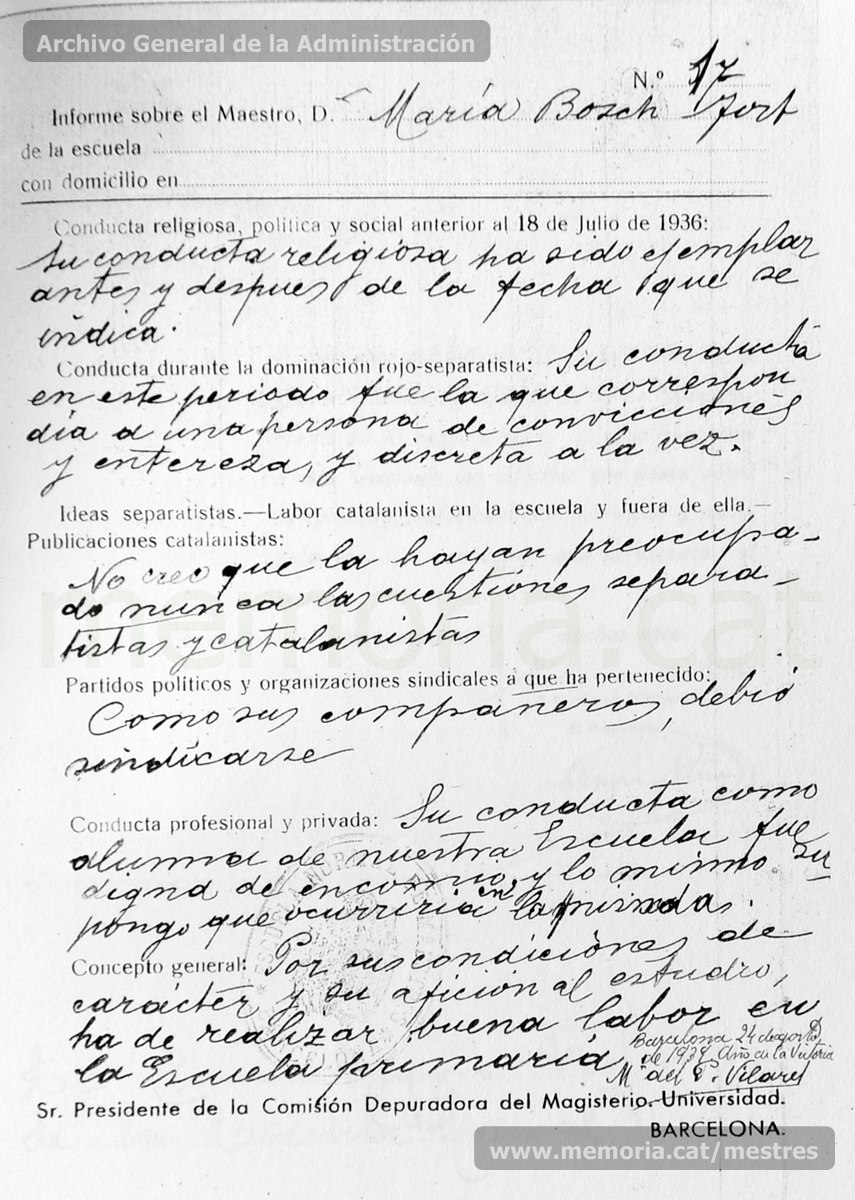 Archivo General de la Administración
N.º 17
Informe sobre el Maestro, D. María Bosch Fort
de la escuela
con domicilio en
Conducta religiosa, política y social anterior al 18 de Julio de 1936:
Su conducta religiosa ha sido ejemplar
antes y despues de la fecha que se
indica.
Conducta durante la dominación rojo-separatista: Su conducta
en este periodo fue la que correspon
día a una persona de convicciones
y entereza, y discreta a la vez.
Ideas separatistas.—Labor catalanista en la escuela y fuera de ella.—
Publicaciones catalanistas:
No creo que la hayan preocupa-
do nunca las cuestiones separa-
tistas y catalanistas
memoria.cat
Partidos políticos y organizaciones sindicales a que ha pertenecido:
Como sus compañeros, debió
sindicarse
Conducta profesional y privada: Su conducta como
alumna de nuestra Escuela fue
digna de encomio, y lo mismo su
pongo que ocurriria en la privada.
Concepto general: Por sus condiciones de
carácter y su afición al estudio,
ha de realizar buena labor en
la Escuela primaria
Barcelona 24 de agosto
de 1939 Año de la Victoria
Mª del P. Vilares
Sr. Presidente de la Comisión Depuradora del Magisterio.-Universidad.
BARCELONA.
www.memoria.cat/mestres